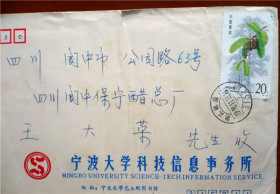 中国邮政
20分
四川 阆中市 公园路63号
四川阆中保宁醋总厂
王大荣 先生 收
宁波大学科技信息事务所
NINGBO UNIVERSITY SCIENCE-TECH INFORMATION SERVICE
地址:宁波大学包玉刚图书馆